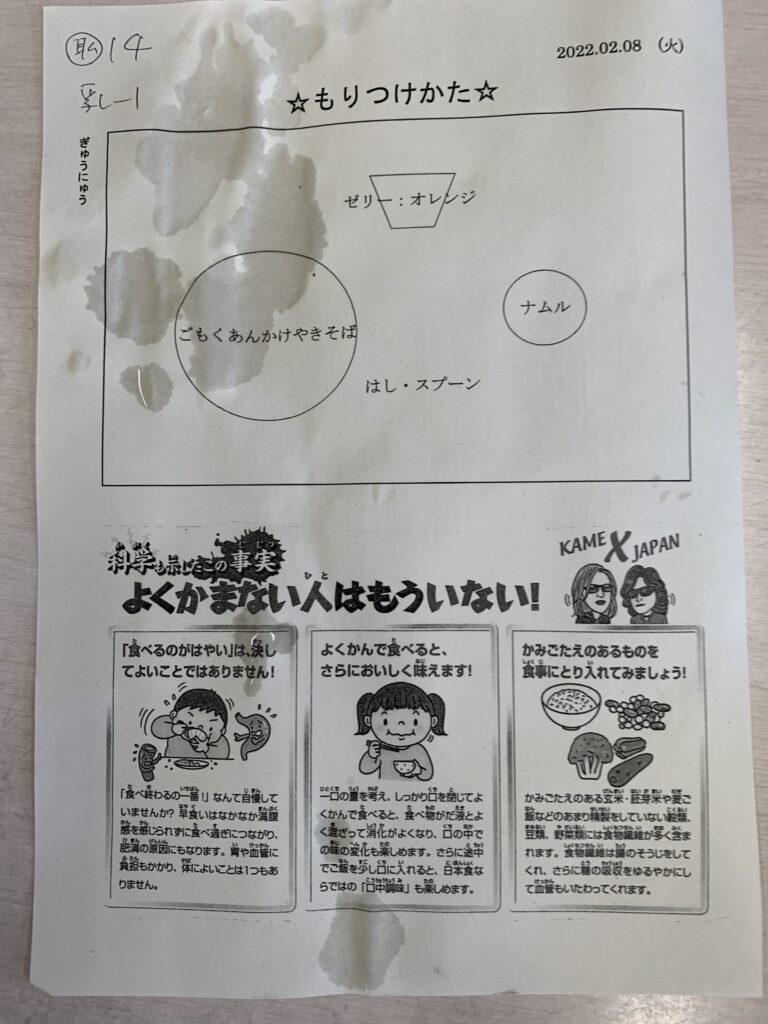 14
2022.02.08 (火)
乳-1
☆もりつけかた☆
ぎゅうにゅう
ゼリー：オレンジ
ナムル
ごもくあんかけやきそば
はし・スプーン
科学も示したこの事実
よくかまない人はもういない!
KAME X JAPAN
「食べるのがはやい」は、決し
てよいことではありません!
「食べ終わるの一番!」なんて自慢して
いませんか? 早食いはなかなか満腹
感を感じられずに食べ過ぎにつながり、
肥満の原因にもなります。胃や血管に
負担もかかり、体によいことは1つもあ
りません。
よくかんで食べると、
さらにおいしく味えます!
一口の量を考え、しっかり口を閉じてよ
くかんで食べると、食べ物がだ液とよ
く混ざって消化がよくなり、口の中で
の味の変化も楽しめます。さらに途中
でご飯を少し口に入れると、日本食な
らではの「口中調味」も楽しめます。
かみごたえのあるものを
食事にとり入れてみましょう!
かみごたえのある玄米・胚芽米や麦ご
飯などのあまり精製をしていない穀類、
豆類、野菜類には食物繊維が多く含ま
れます。食物繊維は腸のそうじをして
くれ、さらに糖の吸収をゆるやかにし
て血管もいたわってくれます。